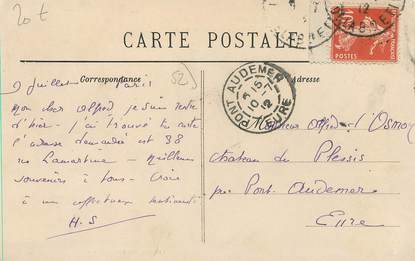 20t
CARTE POSTALE
Correspondance
Adresse
52
9 Juillet Paris
Mon cher Alfred je suis rentré
d'hier - j'ai trouvé ta carte
l'adresse demandée est 38
rue Lamartine - Meilleurs
souvenirs à tous - Crois
à un affectueux
H.S
PONT AUDEMER
15
10-7
12
EURE
POSTES
10
Monsieur Alfred d'Osmoy
Chateau du Plessis
par Pont-Audemer
Eure